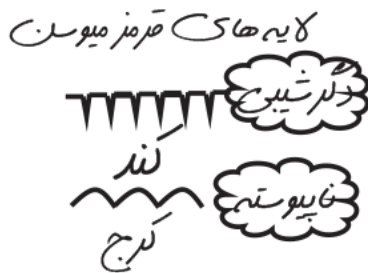 لایه های قرمز میوسن
دگرشیبی
کند
ناپیوسته
کرج